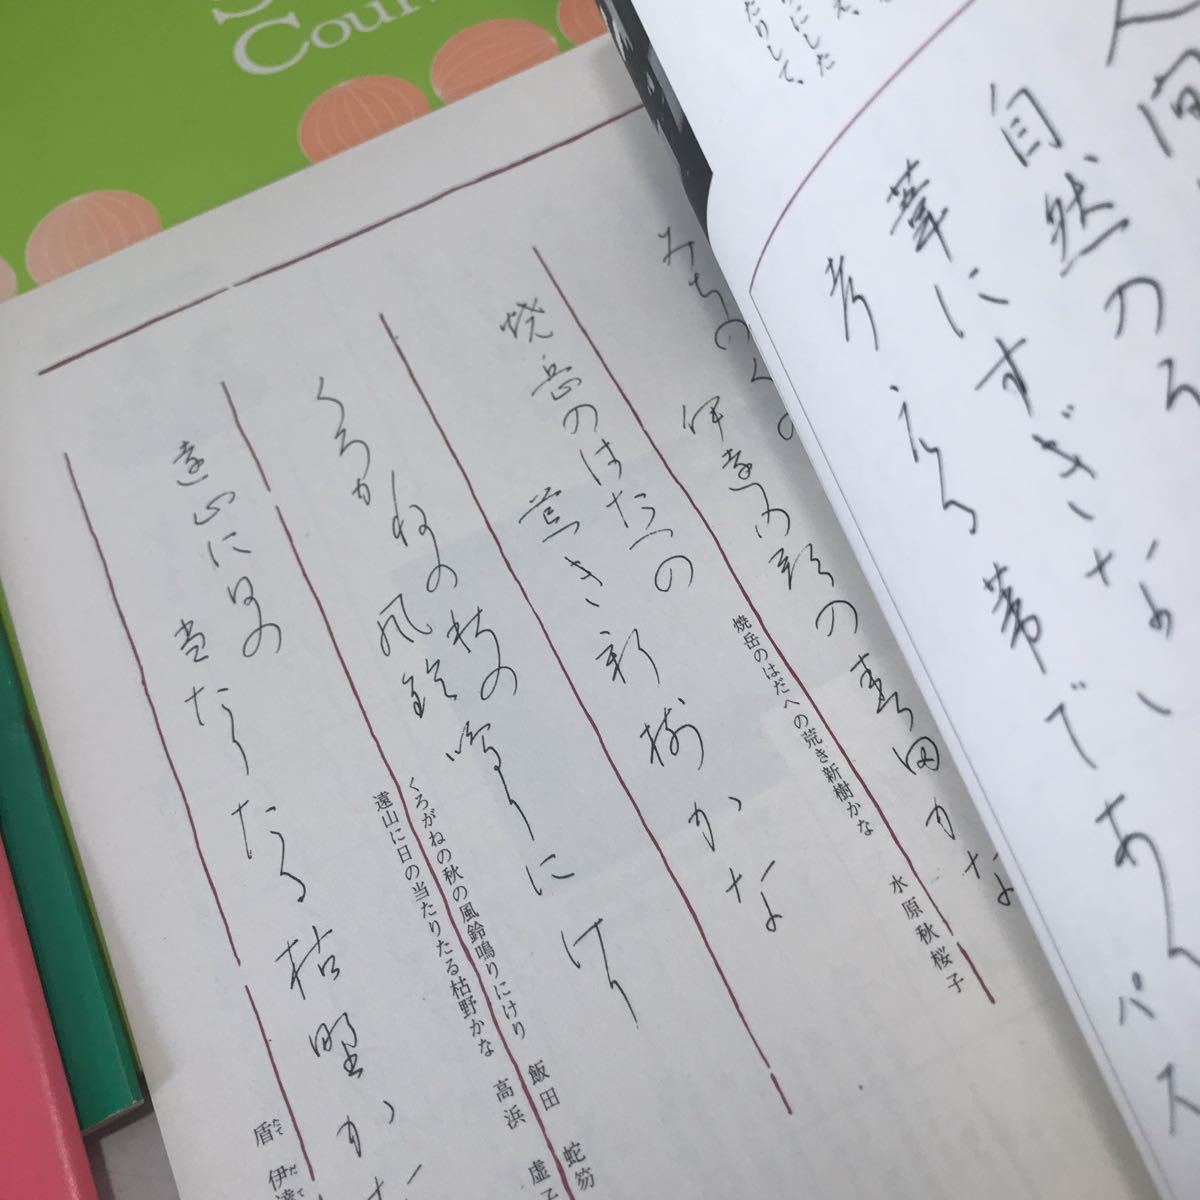 Cour
にした
たりして、
人間
自然のろ
葦にすぎない
考える葦である
パス
みちのくの
伊達の郡の春田かな
焼岳のはだへの
荒き新樹かな
焼岳のはだへの荒き新樹かな
水原秋桜子
くろがねの秋の
風鈴鳴りにけり
くろがねの秋の風鈴鳴りにけり 飯田 蛇笏
遠山に日の当たりたる枯野かな 高浜 虚子
遠山に日の
当たりたる枯野かな
盾 伊達
たて だて